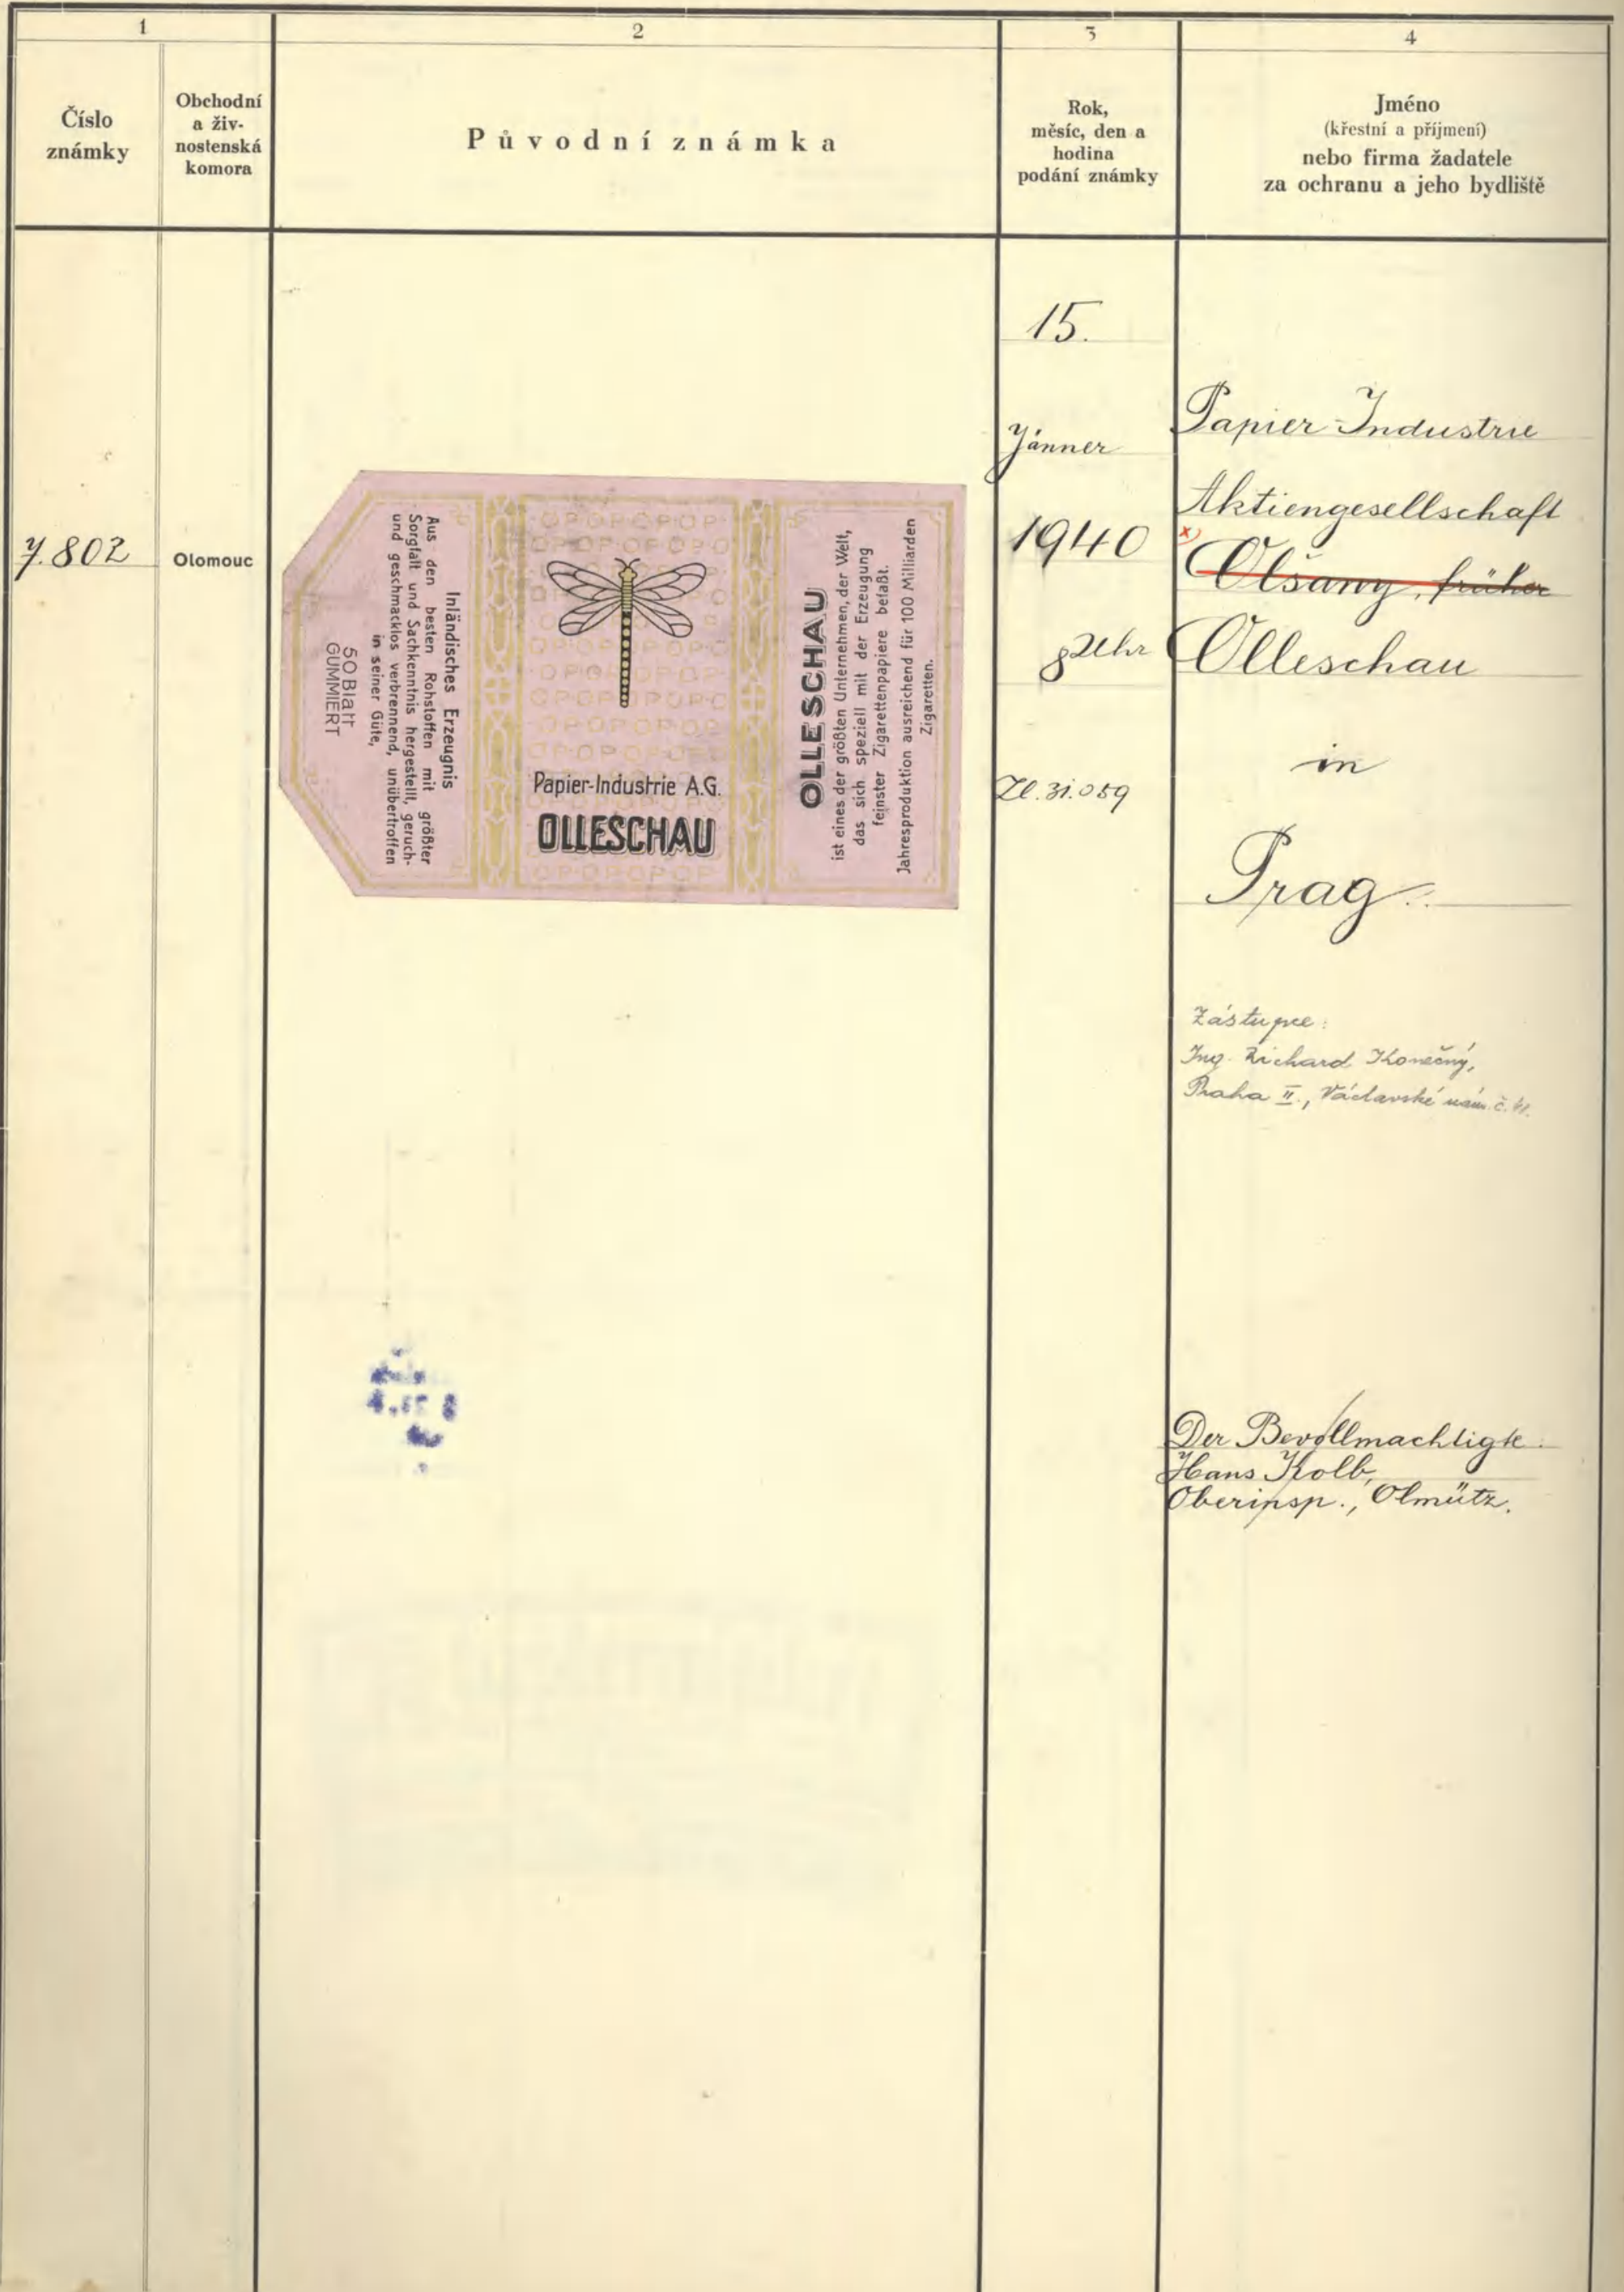 1
2
3
4
Číslo
známky
Obchodní
a živ-
nostenská
komora
Původní známka
Rok,
měsíc, den a
hodina
podání známky
Jméno
(křestní a příjmení)
nebo firma žadatele
za ochranu a jeho bydliště
7.802
Olomouc
Inländisches Erzeugnis
Aus den besten Rohstoffen mit größter
Sorgfalt und Sachkenntnis hergestellt, geruch-
und geschmacklos verbrennend, unübertroffen
in seiner Güte,
50 Blatt
GUMMIERT
Papier-Industrie A.G.
OLLESCHAU
OLLESCHAU
ist eines der größten Unternehmen, der Welt,
das sich speziell mit der Erzeugung
feinster Zigarettenpapiere befaßt.
Jahresproduktion ausreichend für 100 Milliarden
Zigaretten.
15.
Jänner
1940
8 Uhr
Zl. 31.059
Papier-Industrie
Aktiengesellschaft
x)
Olšany, früher
Olleschau
in
Prag
Zástupce:
Ing. Richard Konečný,
Praha II., Václavské nám. č.
Der Bevollmachtigte
Hans Kolb,
Oberinsp., Olmütz.